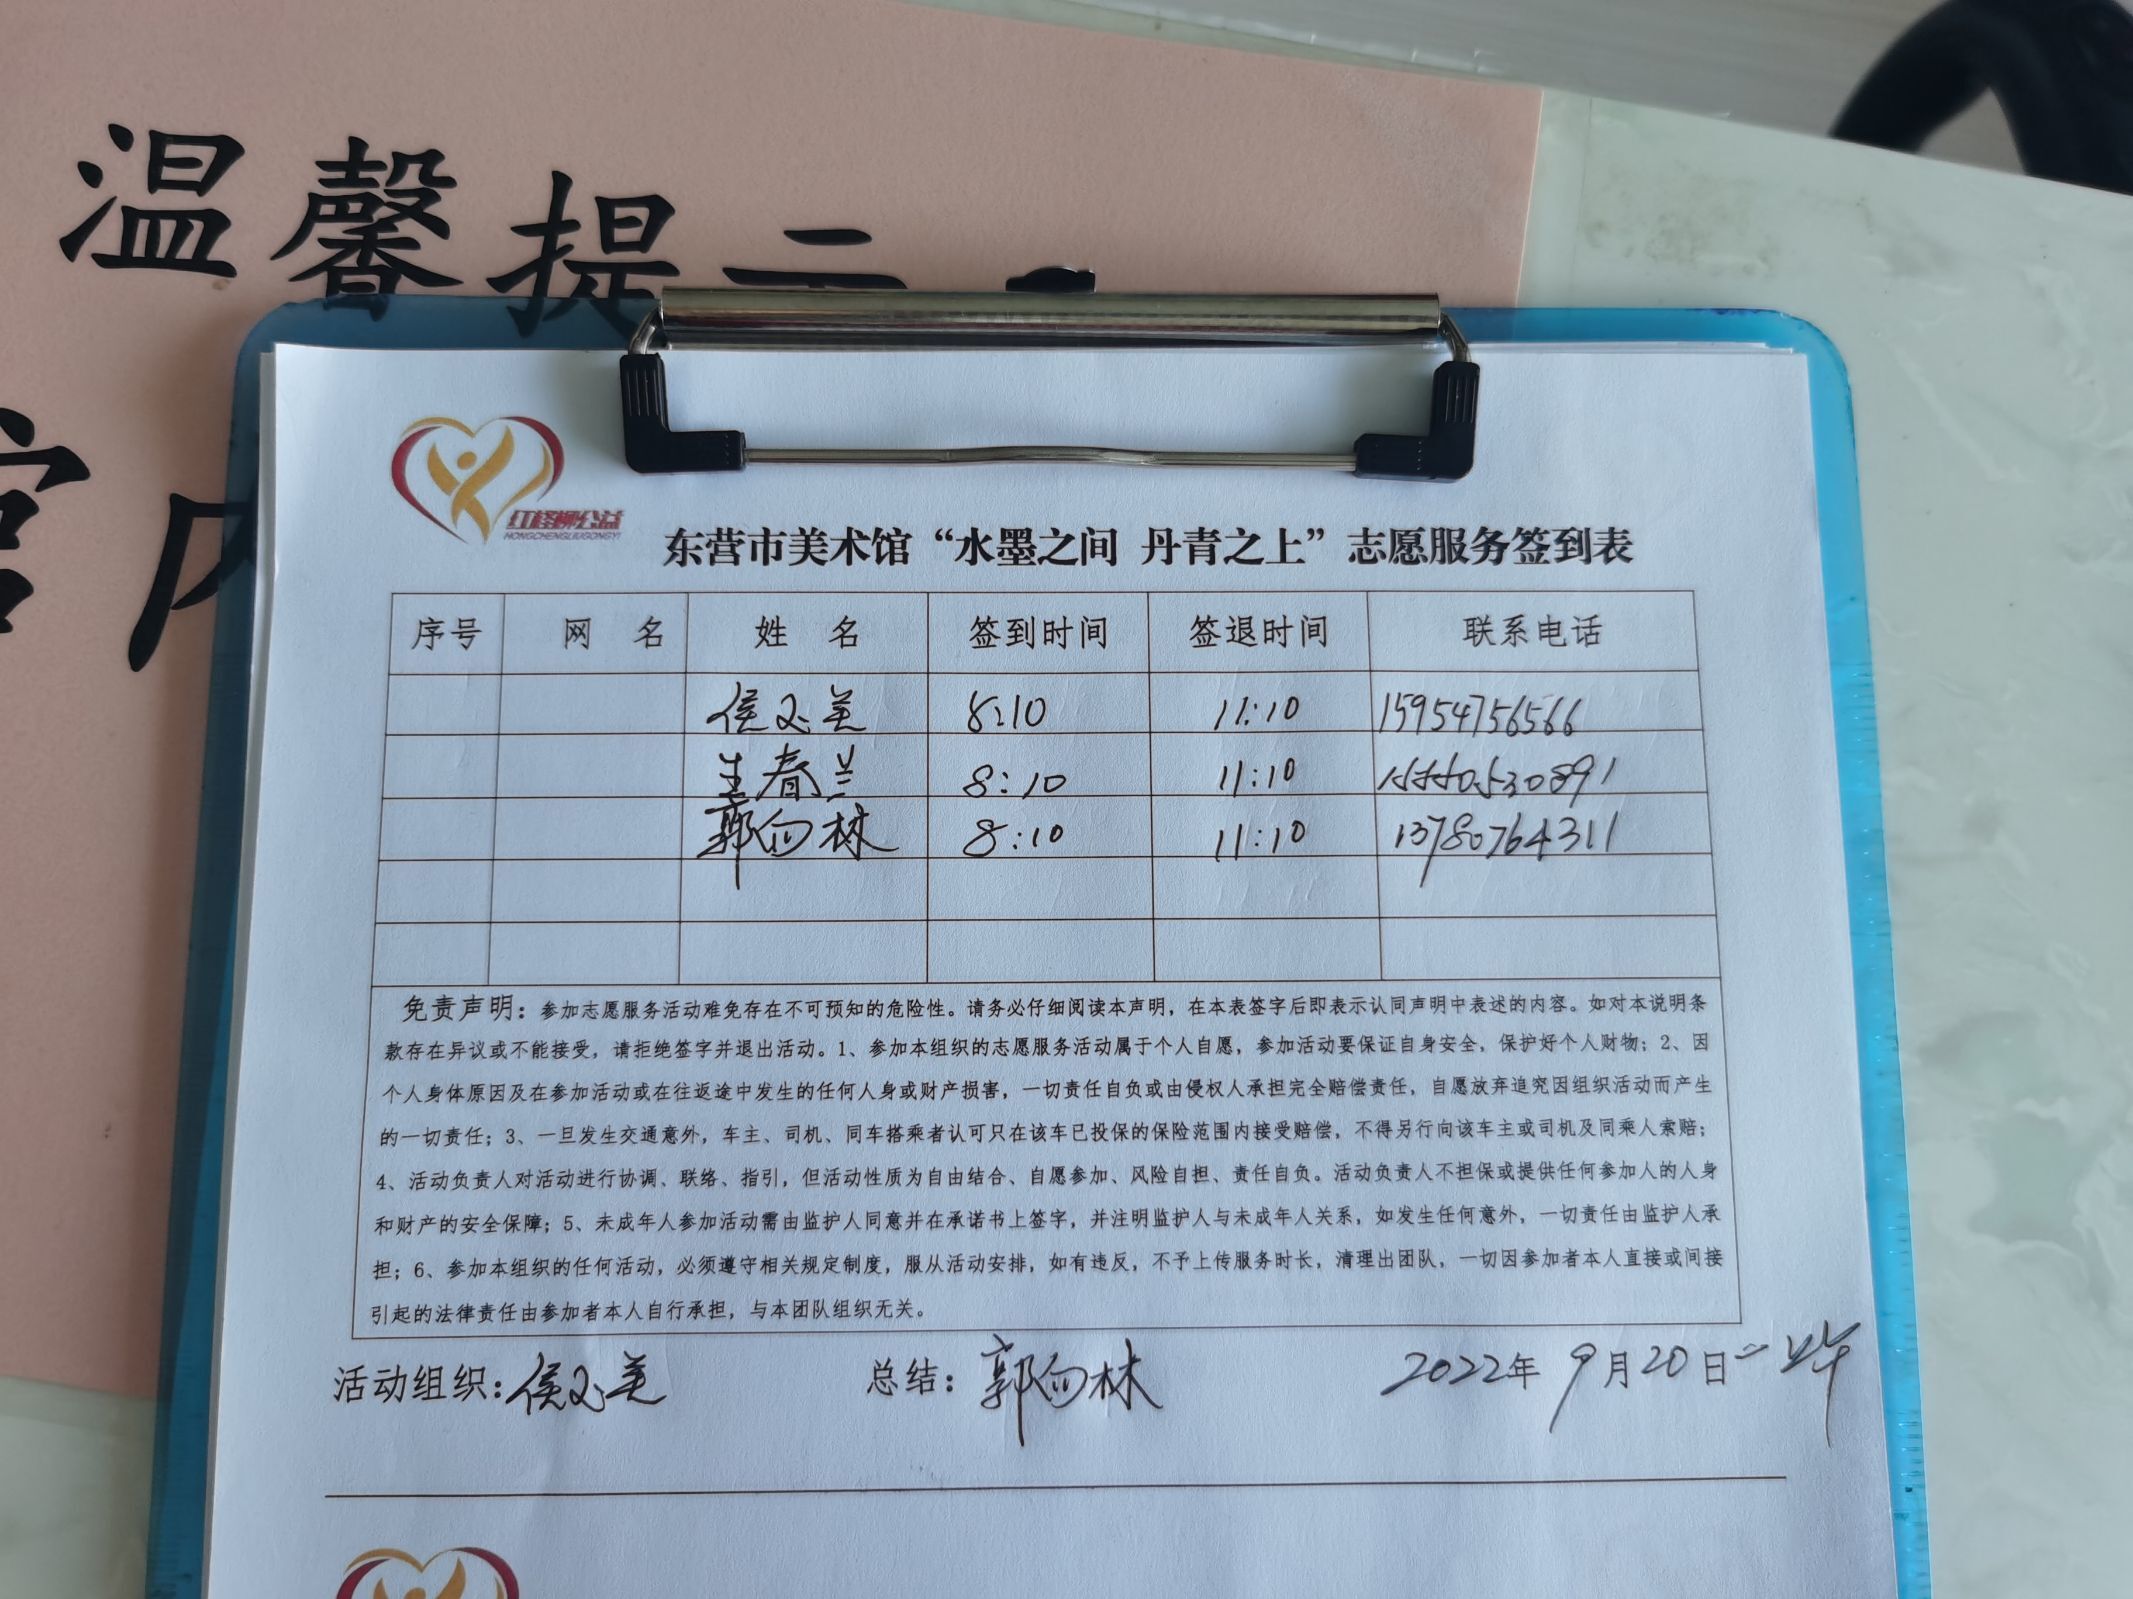 温馨提示
红柽柳公益
HONGCHENGLIUGONGYI
东营市美术馆“水墨之间 丹青之上”志愿服务签到表
序号 网 名 姓 名 签到时间 签退时间 联系电话
侯玉美 8:10 11:10 15954756566
生春兰 8:10 11:10 15550530891
郭向林 8:10 11:10 13780764311
免责声明：参加志愿服务活动难免存在不可预知的危险性。请务必仔细阅读本声明，在本表签字后即表示认同声明中表述的内容。如对本说明条
款存在异议或不能接受，请拒绝签字并退出活动。1、参加本组织的志愿服务活动属于个人自愿，参加活动要保证自身安全，保护好个人财物；2、因
个人身体原因及在参加活动或在往返途中发生的任何人身或财产损害，一切责任自负或由侵权人承担完全赔偿责任，自愿放弃追究因组织活动而产生
的一切责任；3、一旦发生交通意外，车主、司机、同车搭乘者认可只在该车已投保的保险范围内接受赔偿，不得另行向该车主或司机及同乘人索赔；
4、活动负责人对活动进行协调、联络、指引，但活动性质为自由结合、自愿参加、风险自担、责任自负。活动负责人不担保或提供任何参加人的人身
和财产的安全保障；5、未成年人参加活动需由监护人同意并在承诺书上签字，并注明监护人与未成年人关系，如发生任何意外，一切责任由监护人承
担；6、参加本组织的任何活动，必须遵守相关规定制度，服从活动安排，如有违反，不予上传服务时长，清理出团队，一切因参加者本人直接或间接
引起的法律责任由参加者本人自行承担，与本团队组织无关。
活动组织：侯玉美 总结：郭向林 2022年9月20日上午